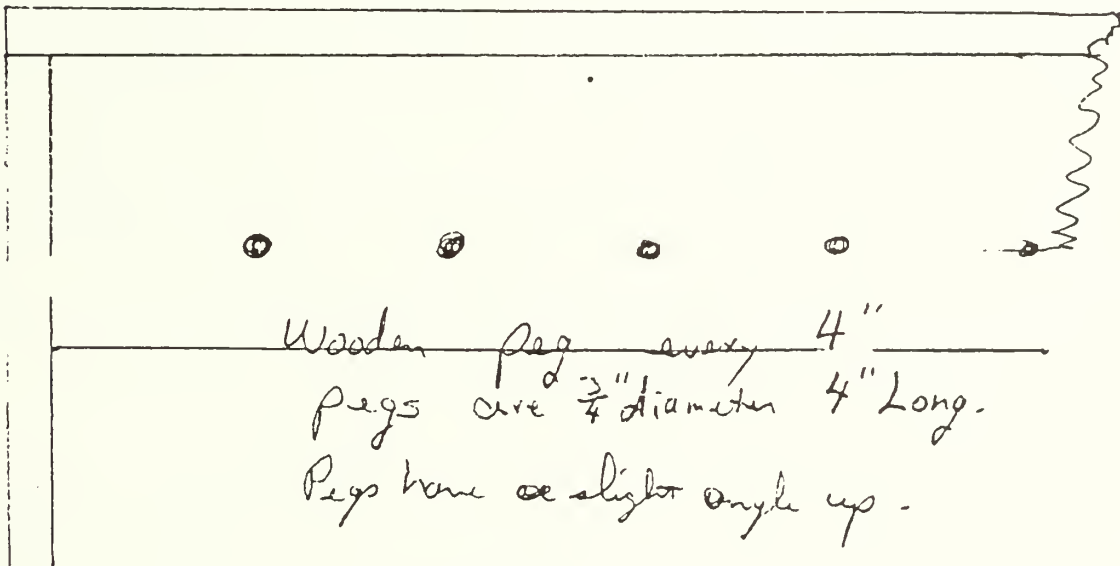 Wooden peg every 4"
pegs are 3/4" diameter 4" Long.
Pegs have a slight angle up.